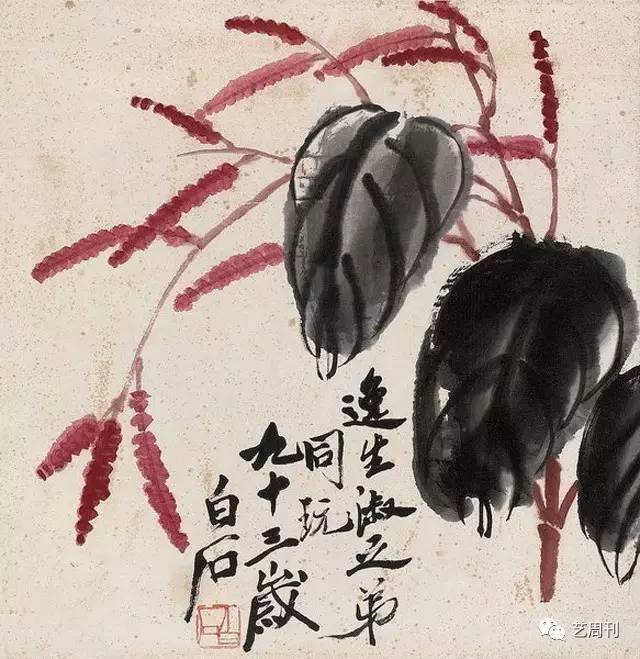 逸生淑之弟
同玩
九十三歲
白石
艺周刊